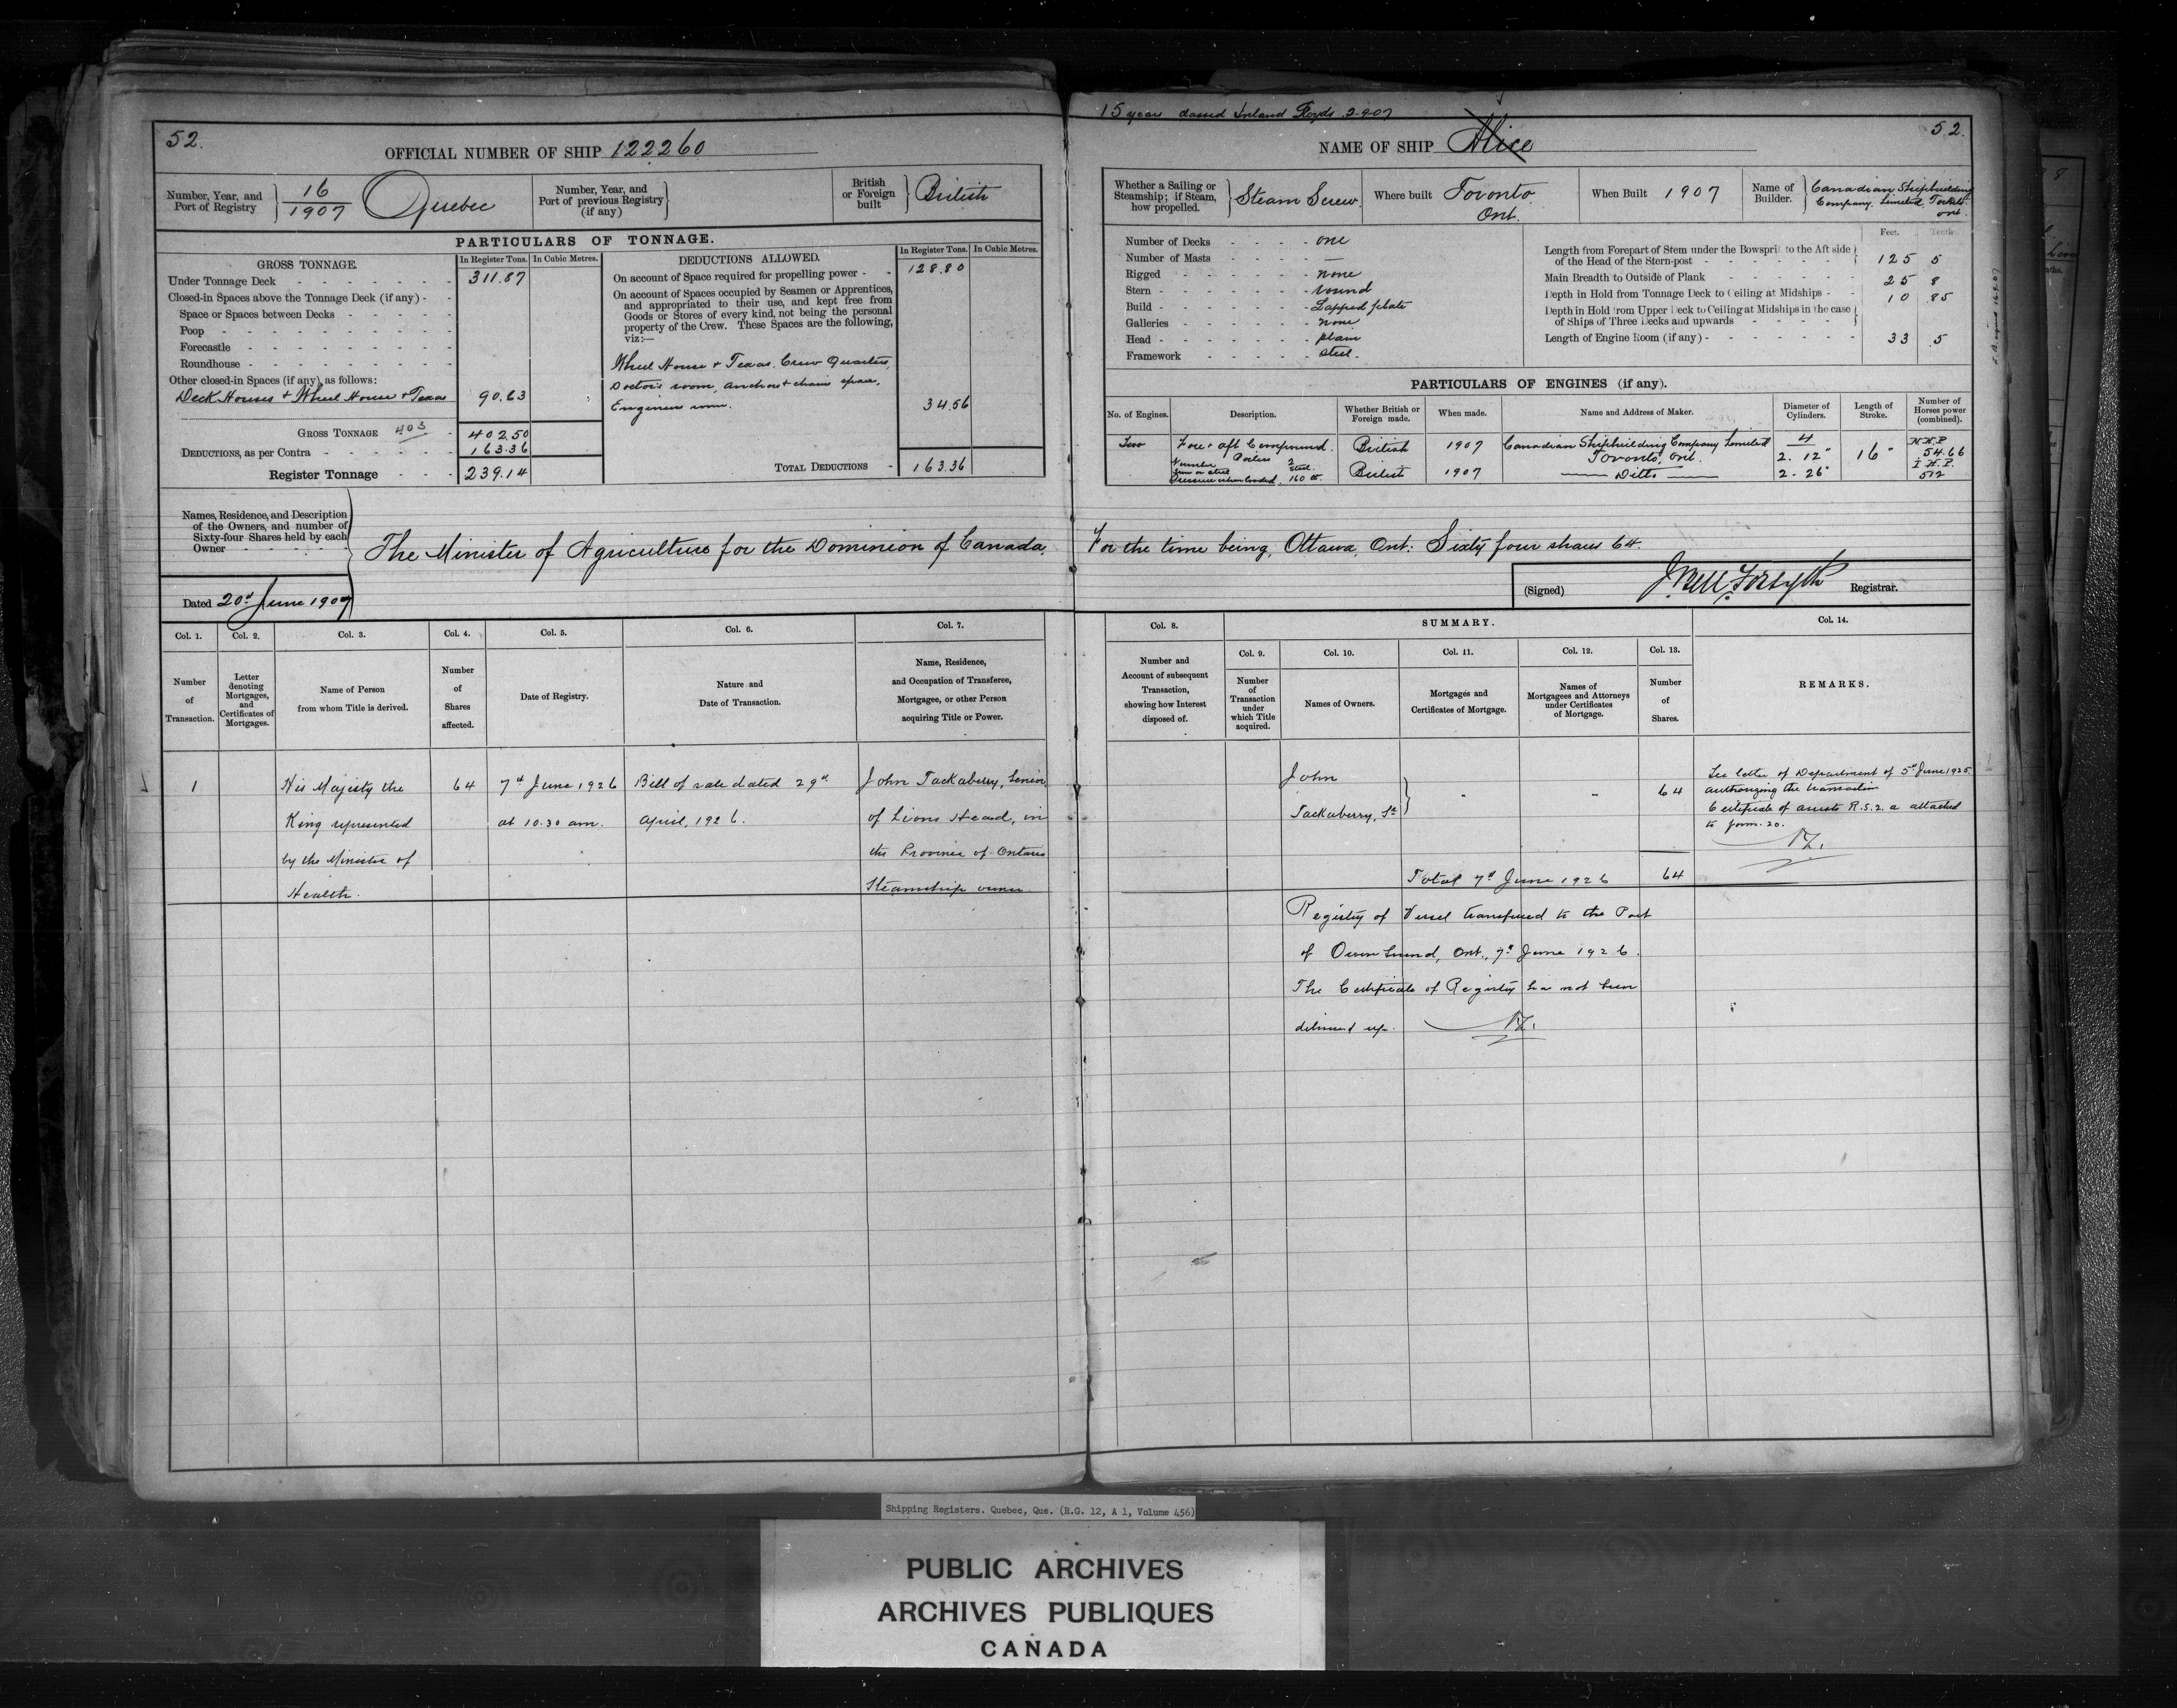 52.
OFFICIAL NUMBER OF SHIP 122260
Number, Year, and Port of Registry 16/1907 Quebec
Number, Year, and Port of previous Registry (if any)
British or Foreign built British
PARTICULARS OF TONNAGE.
GROSS TONNAGE.
In Register Tons. In Cubic Metres.
Under Tonnage Deck 311.87
Closed-in Spaces above the Tonnage Deck (if any)
Space or Spaces between Decks
Poop
Forecastle
Roundhouse
Other closed-in Spaces (if any), as follows:
Deck Houses + Wheel House + Texas 90.63
GROSS TONNAGE 403 402.50
DEDUCTIONS, as per Contra 163.36
Register Tonnage 239.14
DEDUCTIONS ALLOWED.
In Register Tons. In Cubic Metres.
On account of Space required for propelling power 128.80
On account of Spaces occupied by Seamen or Apprentices,
and appropriated to their use, and kept free from
Goods or Stores of every kind, not being the personal
property of the Crew. These Spaces are the following,
viz:—
Wheel House + Texas. Crew Quarters
Doctor's room, anchor + chain space,
Engineers room. 34.56
TOTAL DEDUCTIONS 163.36
Names, Residence, and Description
of the Owners, and number of
Sixty-four Shares held by each
Owner
The Minister of Agriculture for the Dominion of Canada,
Dated 20th June 1907
Col. 1. Col. 2. Col. 3. Col. 4. Col. 5. Col. 6. Col. 7.
Number of Transaction.
Letter denoting Mortgages, and Certificates of Mortgages.
Name of Person from whom Title is derived.
Number of Shares affected.
Date of Registry.
Nature and Date of Transaction.
Name, Residence, and Occupation of Transferee, Mortgagee, or other Person acquiring Title or Power.
1 His Majesty the 64 7th June 1926 Bill of sale dated 29th John Tackaberry, Senior
King represented at 10.30 am. April, 1926. of Lions Head, in
by the Minister of the Province of Ontario
Health. Steamship owner.
15 years classed Inland Lloyds 3-9-07
52.
NAME OF SHIP Alice
Whether a Sailing or Steamship; if Steam, how propelled. Steam Screw
Where built Toronto Ont.
When Built 1907
Name of Builder. Canadian Shipbuilding Company Limited Ont.
Number of Decks one
Number of Masts —
Rigged none
Stern round
Build Lapped plate
Galleries none
Head plain
Framework steel.
Feet. Tenths.
Length from Forepart of Stem under the Bowsprit to the Aft side
of the Head of the Stern-post 125 5
Main Breadth to Outside of Plank 25 8
Depth in Hold from Tonnage Deck to Ceiling at Midships 10 85
Depth in Hold from Upper Deck to Ceiling at Midships in the case
of Ships of Three Decks and upwards
Length of Engine Room (if any) 33 .5
PARTICULARS OF ENGINES (if any).
No. of Engines. Description. Whether British or Foreign made. When made. Name and Address of Maker. Diameter of Cylinders. Length of Stroke. Number of Horses power (combined).
Two Fore + aft Compound. British 1907 Canadian Shipbuilding Company Limited Toronto, Ont. 4 2. 12" 16" N.H.P 54.66
Number Boilers 2
Iron or steel Steel.
Pressure when loaded. 160 lb. British 1907 — Ditto — 2. 26" I.H.P. 512
For the time being, Ottawa, Ont: Sixty four shares 64.
(Signed) J. Bell Forsyth Registrar.
Col. 8. SUMMARY. Col. 14.
Col. 9. Col. 10. Col. 11. Col. 12. Col. 13.
Number and Account of subsequent Transaction, showing how Interest disposed of.
Number of Transaction under which Title acquired.
Names of Owners.
Mortgages and Certificates of Mortgage.
Names of Mortgagees and Attorneys under Certificates of Mortgage.
Number of Shares.
REMARKS.
John
Tackaberry, Sr - - 64
See letter of Department of 5th June 1925
authorizing the transaction
Certificate of R.S.2. a attached
to form. 20.
Total 7th June 1926 64
Registry of Vessel transferred to the Port
of Owen Sound, Ont., 7th June 1926.
The Certificate of Registry has not been
delivered up.
Shipping Registers. Quebec, Que. (R.G. 12, A 1, Volume 456)
PUBLIC ARCHIVES
ARCHIVES PUBLIQUES
CANADA